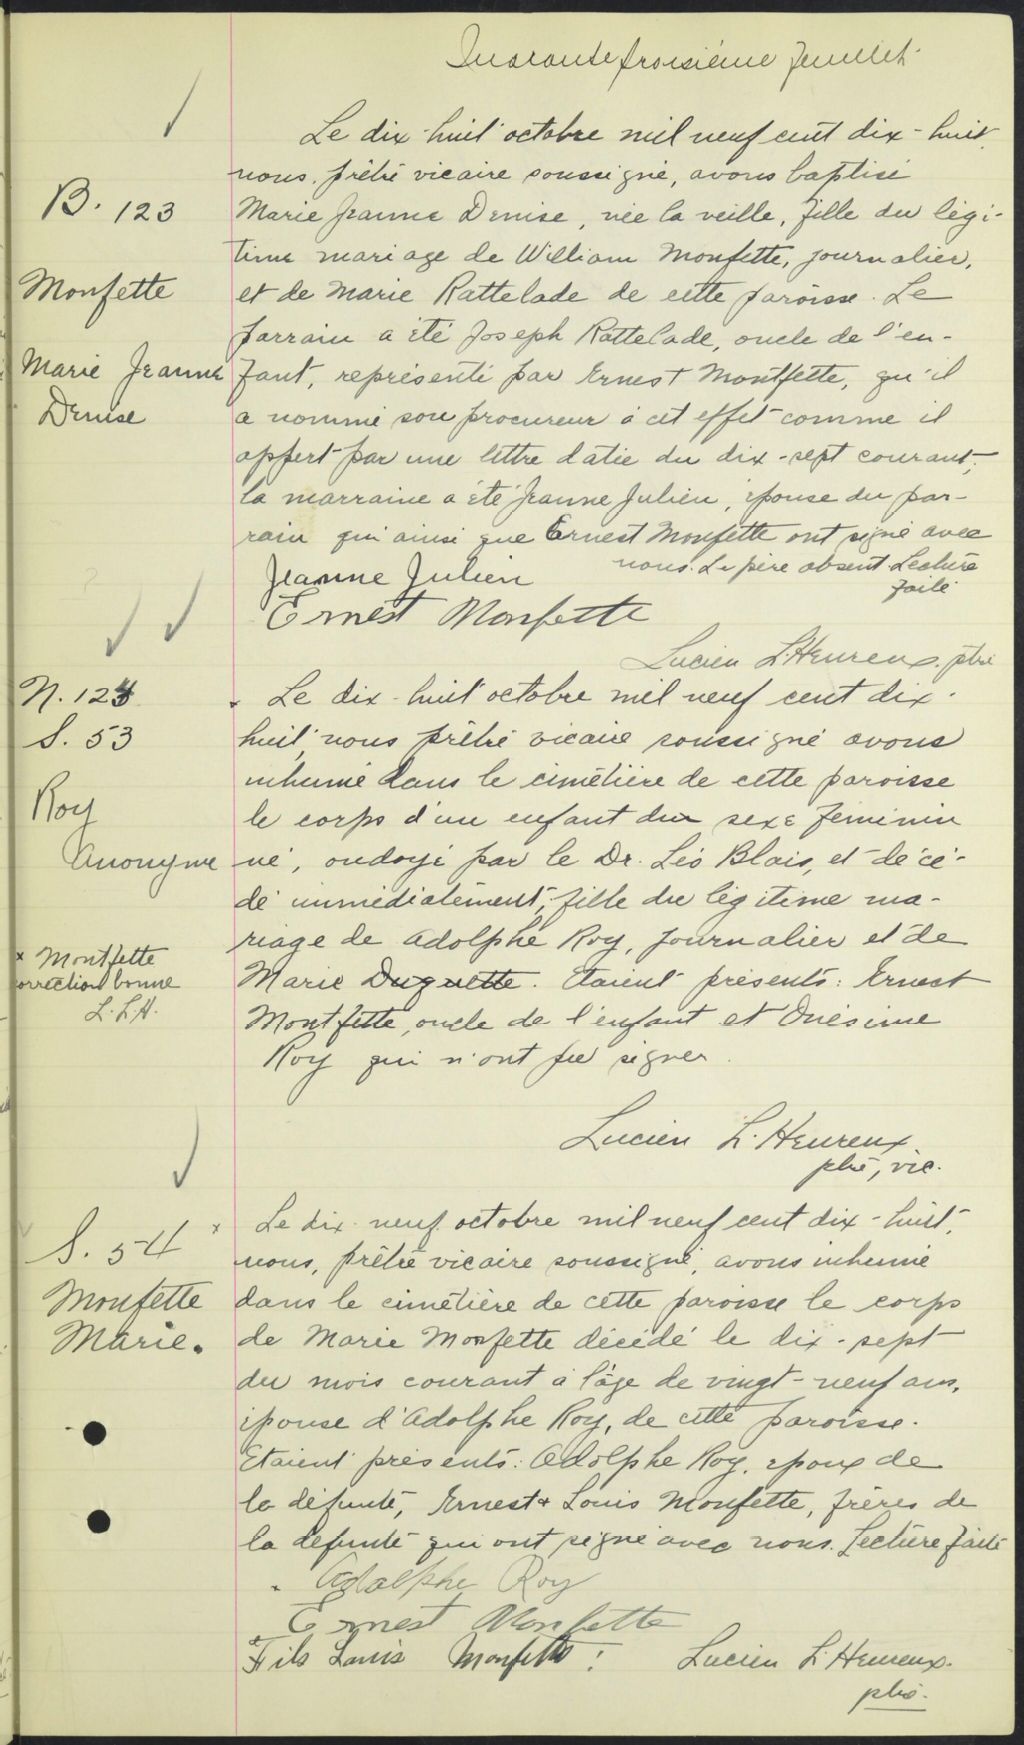 Quarante troisième feuillet
Le dix-huit octobre mil neuf cent dix-huit,
nous, prêtre vicaire soussigné, avons baptisé
B. 123
Marie Jeanne Denise, née la veille, fille du légi-
time mariage de William Monfette, journalier,
Monfette
et de Marie Rattelade de cette paroisse. Le
parrain a été Joseph Rattelade, oncle de l'en-
Marie Jeanne
Denise
fant, représenté par Ernest Montfette, qu'il
a nommé son procureur à cet effet comme il
appert par une lettre datée du dix-sept courant,
la marraine a été Jeanne Julien, épouse du par-
rain qui ainsi que Ernest Monfette ont signé avec
nous. Le père absent. Lecture
faite
Jeanne Julien
Ernest Monfette
Lucien L'Heureux, ptre
N. 124
S. 53
Le dix-huit octobre mil neuf cent dix-
huit, nous prêtre vicaire soussigné avons
inhumé dans le cimetière de cette paroisse
Roy
Anonyme
le corps d'un enfant du sexe féminin
né, ondoyé par le Dr. Léo Blais, et décé-
dé immédiatement, fille du légitime ma-
riage de Adolphe Roy, journalier et de
x Montfette
correction bonne
L. L'H.
Marie Duguette. Etaient présents: Ernest
Montfette, oncle de l'enfant et Onésime
Roy qui n'ont pu signer.
Lucien L'Heureux
ptre, vic.
S. 54
Le dix-neuf octobre mil neuf cent dix-huit,
nous, prêtre vicaire soussigné, avons inhumé
Monfette
Marie.
dans le cimetière de cette paroisse le corps
de Marie Monfette décédé le dix-sept
du mois courant à l'âge de vingt-neuf ans,
épouse d'Adolphe Roy, de cette paroisse.
Etaient présents: Adolphe Roy, époux de
la défunte, Ernest & Louis Monfette, frères de
la défunte qui ont signé avec nous. Lecture faite
Adalphe Roy
Ernest Monfette
Fils Lauis Monfette:
Lucien L'Heureux.
ptre.